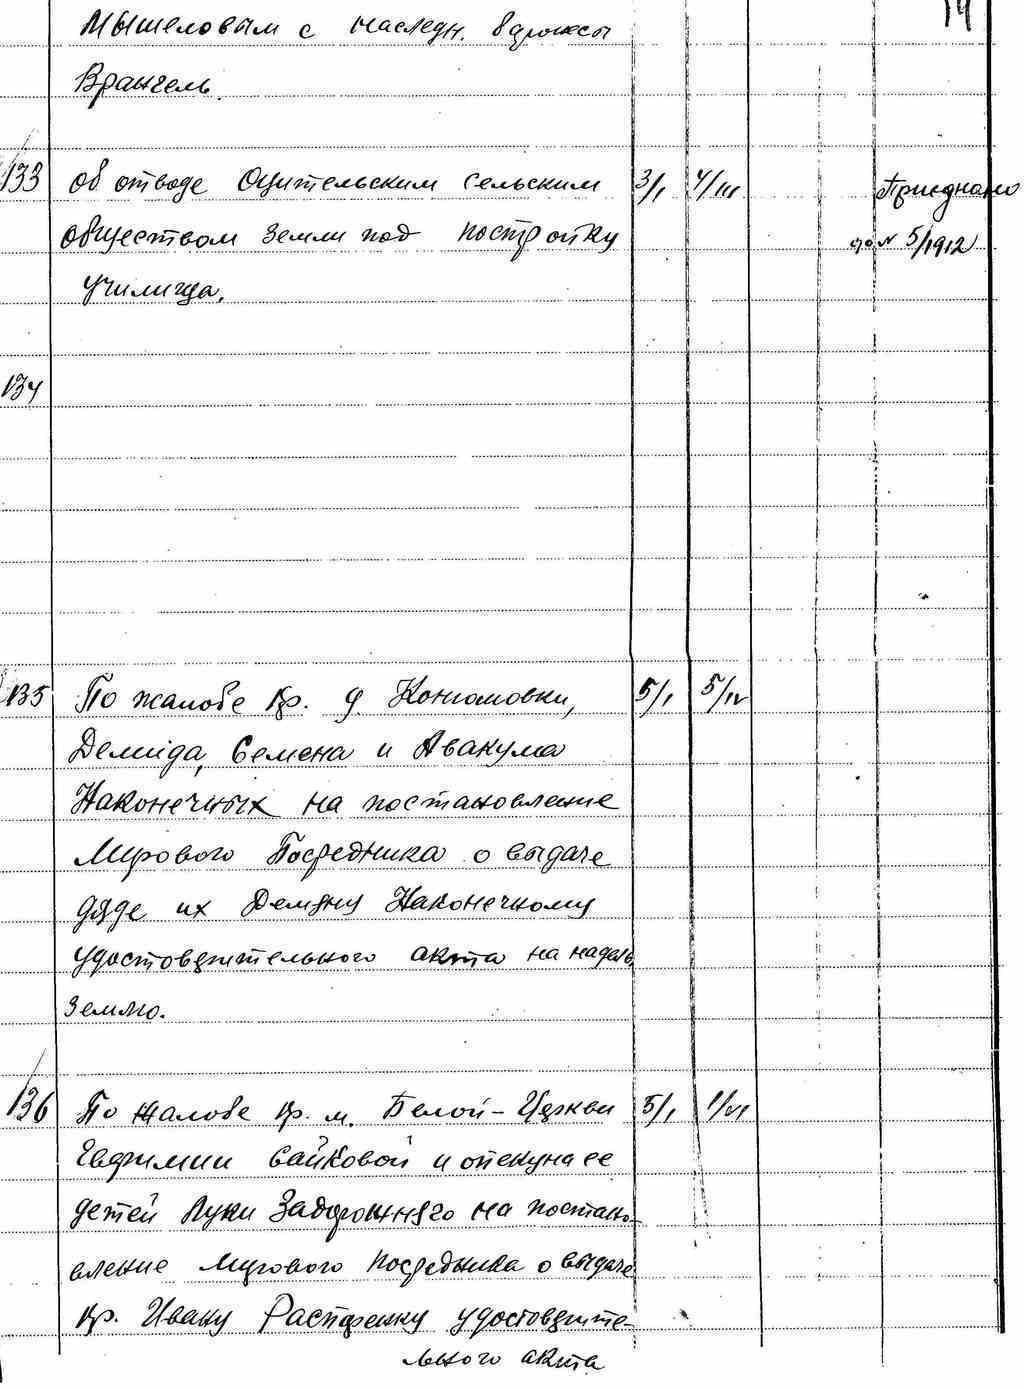 14
Мышеловым с наследн. Вдовы
Врангель.
133 об отводе Оцительским сельским 3/I 4/III Приеднано
обществом земли под постройку до № 5/1912
училища.
134
135 По жалобе кр. д. Коншовки, 5/I 5/IV
Демида, Семена и Авакума
Наконечных на постановление
Мирового Посредника о выдаче
дяде их Демяну Наконечному
удостоверительного акта на надельн.
землю.
136 По жалобе кр. м. Белой-Церкви 5/I 1/VI
Евфимии Байковой и опекуна ее
детей Луки Задорожняго на постано-
вление мирового посредника о выдаче
кр. Ивану Распоренку удостоверите-
льного акта